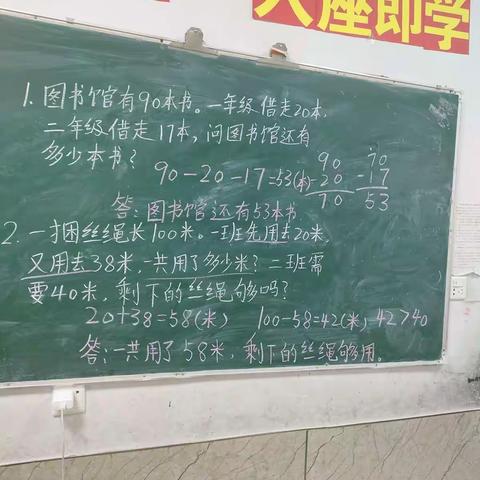 入座即学
1.图书馆有90本书。一年级借走20本,
二年级借走17本,问图书馆还有
多少本书?
90-20-17=53(本)
90
-20
70
70
-17
53
答:图书馆还有53本书
2.一捆丝绳长100米。一班先用去20米,
又用去38米,一共用了多少米?二班需
要40米,剩下的丝绳够吗?
20+38=58(米) 100-58=42(米) 42>40
答:一共用了58米,剩下的丝绳够用。